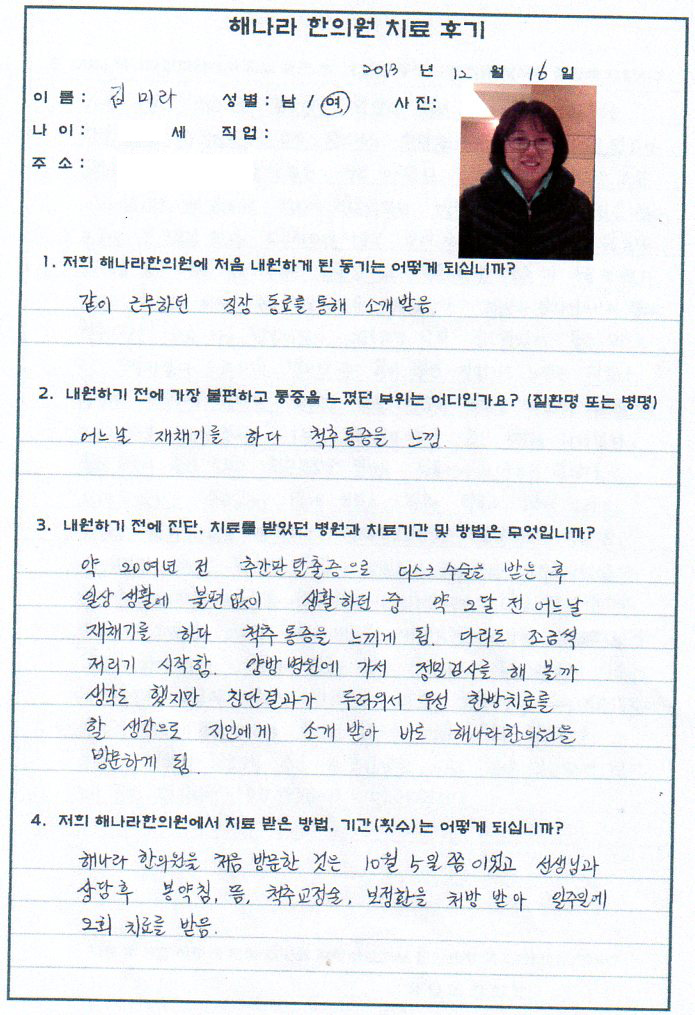 해나라 한의원 치료 후기
2013 년 12 월 16 일
이 름 : 김 미라 성별 : 남 / 여 사 진 :
나 이 : 세 직 업 :
주 소 :
1. 저희 해나라한의원에 처음 내원하게 된 동기는 어떻게 되십니까?
같이 근무하던 직장 동료를 통해 소개받음.
2. 내원하기 전에 가장 불편하고 통증을 느꼈던 부위는 어디인가요? (질환명 또는 병명)
어느날 재채기를 하다 척추통증을 느낌.
3. 내원하기 전에 진단, 치료를 받았던 병원과 치료기간 및 방법은 무엇입니까?
약 20여년 전 추간판탈출증으로 디스크 수술을 받은 후
일상 생활에 불편없이 생활하던 중 약 2달 전 어느날
재채기를 하다 척추통증을 느끼게 됨. 다리도 조금씩
저리기 시작함. 양방병원에 가서 정밀검사를 해 볼까
생각도 했지만 진단결과가 두려워서 우선 한방치료를
할 생각으로 지인에게 소개받아 바로 해나라한의원을
방문하게 됨.
4. 저희 해나라한의원에서 치료 받은 방법, 기간(횟수)는 어떻게 되십니까?
해나라 한의원을 처음 방문한 것은 10월 5일쯤 이었고 선생님과
상담후 봉약침, 뜸, 척추교정술, 보정환을 처방 받아 일주일에
2회 치료를 받음.